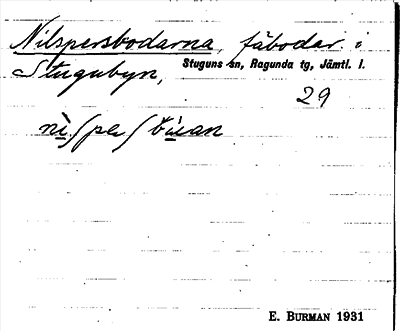 Nilspersbodarna, fäbodar i
Stugubyn, Stuguns sn, Ragunda tg, Jämtl. l.
29
E. BURMAN 1931